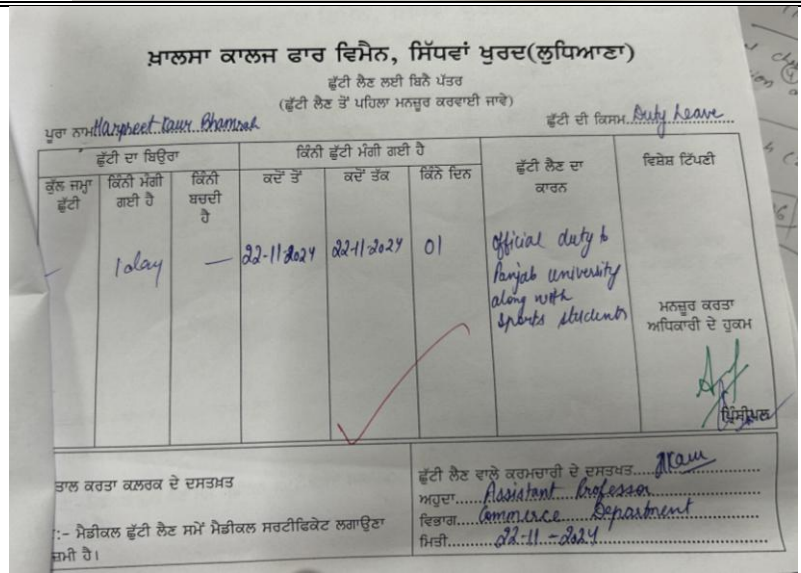 ਖ਼ਾਲਸਾ ਕਾਲਜ ਫਾਰ ਵਿਮੈਨ, ਸਿੱਧਵਾਂ ਖੁਰਦ(ਲੁਧਿਆਣਾ)
ਛੁੱਟੀ ਲੈਣ ਲਈ ਬਿਨੈ ਪੱਤਰ
(ਛੁੱਟੀ ਲੈਣ ਤੋਂ ਪਹਿਲਾ ਮਨਜ਼ੂਰ ਕਰਵਾਈ ਜਾਵੇ)
ਪੂਰਾ ਨਾਮ Harpreet Kaur Bhamrah ਛੁੱਟੀ ਦੀ ਕਿਸਮ Duty Leave
ਛੁੱਟੀ ਦਾ ਬਿਉਰਾ ਕਿੰਨੀ ਛੁੱਟੀ ਮੰਗੀ ਗਈ ਹੈ ਛੁੱਟੀ ਲੈਣ ਦਾ ਵਿਸ਼ੇਸ਼ ਟਿੱਪਣੀ
ਕੁੱਲ ਜਮ੍ਹਾ ਕਿੰਨੀ ਮੰਗੀ ਕਿੰਨੀ ਕਦੋਂ ਤੋਂ ਕਦੋਂ ਤੱਕ ਕਿੰਨੇ ਦਿਨ ਕਾਰਨ
ਛੁੱਟੀ ਗਈ ਹੈ ਬਚਦੀ
ਹੈ
- 1 day - 22-11-2024 22-11-2024 01 Official duty to
Panjab university
along with
sports students
ਮਨਜ਼ੂਰ ਕਰਤਾ
ਅਧਿਕਾਰੀ ਦੇ ਹੁਕਮ
ਪ੍ਰਿੰਸੀਪਲ
ਤਾਲ ਕਰਤਾ ਕਲਰਕ ਦੇ ਦਸਤਖ਼ਤ
:- ਮੈਡੀਕਲ ਛੁੱਟੀ ਲੈਣ ਸਮੇਂ ਮੈਡੀਕਲ ਸਰਟੀਫਿਕੇਟ ਲਗਾਉਣਾ
ਜ਼ਮੀ ਹੈ।
ਛੁੱਟੀ ਲੈਣ ਵਾਲੇ ਕਰਮਚਾਰੀ ਦੇ ਦਸਤਖਤ HKaur
ਅਹੁਦਾ Assistant Professor
ਵਿਭਾਗ Commerce Department
ਮਿਤੀ 22-11-2024